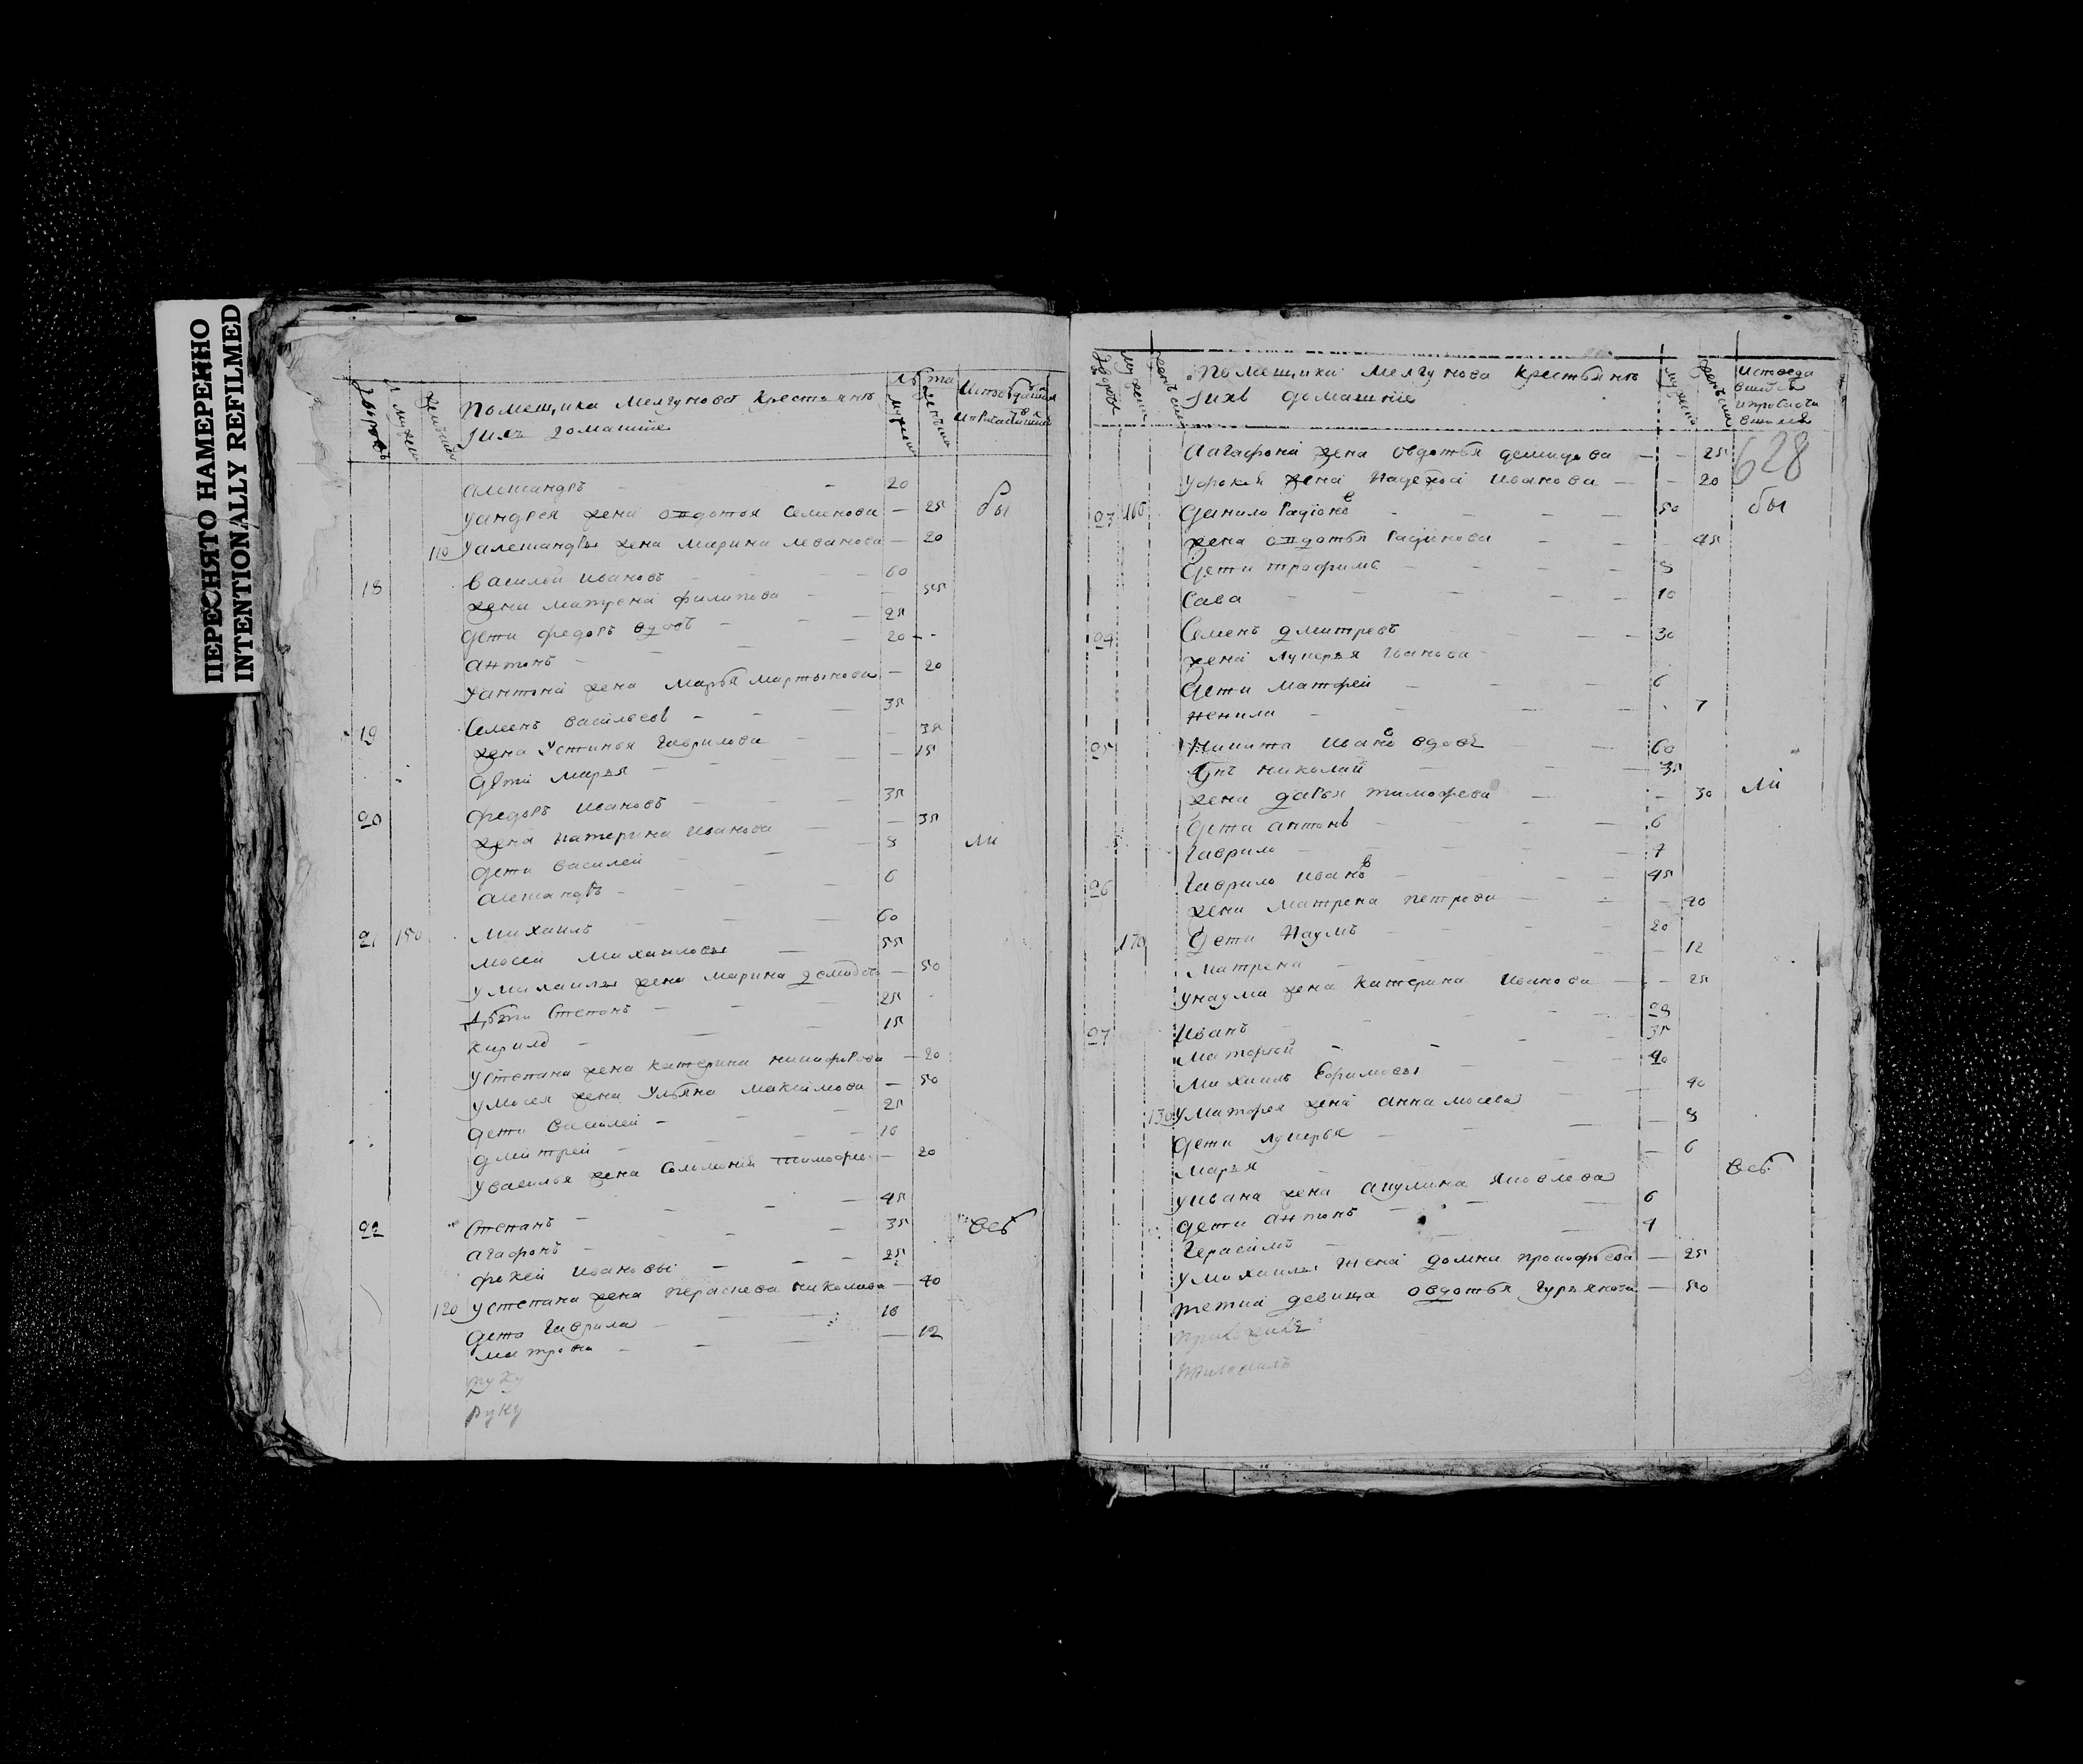 ПЕРЕСНЯТО НАМЕРЕННО
INTENTIONALLY REFILMED
дворовъ
мужеска
женска
Помещика Мелгунова крестьянъ
iихъ домашние
лѣта
мужеска
женска
алеѯандръ - - 20
Уандрея жена овдотья Семенова — 25 бы
110 Уалеѯандры жена Марина леванова — 20
18 Василей Ивановъ - - 60
жена матрена филипова - - 55
дети федоръ вдовъ - - 25
антонъ - - 20
Уантона жена Марья Мартынова — 20
19 Семенъ васильевъ - - 35
жена Устинья гаврилова - 35
дети Марья - - 15
20 федоръ Ивановъ - - 35
жена катерина Иванова - 35
дети василей - - 8 ли
алеѯандръ - - 6
21 150 Михаилъ - - 60
Мосей Михаиловы — 55
У михаилы жена марина — 50
дѣти Степанъ - - 25
кирило - - 15
Устепана жена катерина никифорова — 20
умосея жена Ульяна Максимова — 50
дети василей - - 25
дмитрей - - 16
Увасилья жена Соломонiя тимофее — 20
22 Степанъ - - 45 всѣ
агафонъ - - 35
фокей Ивановы - - 25
120 Устепана жена Параскева николаева — 40
дети гаврила - - 16
матрона - - 12
руку
руку
дворовъ
мужеска
женска
Помещика Мелгунова крестьянъ
iихъ домашние
мужеска
женска
Исповеда
628
Аагафона жена овдотья демидова — 25
Уфокей жена Надежда Иванова — 20
23 160 Данило Радiоновъ - - 50 бы
жена овдотья Радiонова - - 45
Дети трофимъ - - 8
Сава - - 10
24 Семенъ дмитревъ - - 30
жена лукерья Иванова -
Дети Матфей - - 6
ненила - - 7
25 Никита Ивановъ вдовъ - 60
Сынъ николай - - 35
жена дарья тимофева - - 30 ли
дети антонъ - - 6
Гаврило - - 7
26 Гаврило Ивановъ - - 45
жена матрена петрова - - 40
170 Дети Наумъ - - 20
матрена - - 12
Унаума жена катерина Иванова — 25
27 Иванъ - -
Матфей - - 35
Михаилъ Ефимовы - 40
130 Уматфея жена анна мосева - 40
дети лукерья - - 8
Марья - - 6
Уивана жена акулина Яковлева всѣ
дети антонъ - - 6
Герасимъ - - 4
Умихаилы жена домна прокофьева — 25
тетка девица овдотья гурьянова — 50